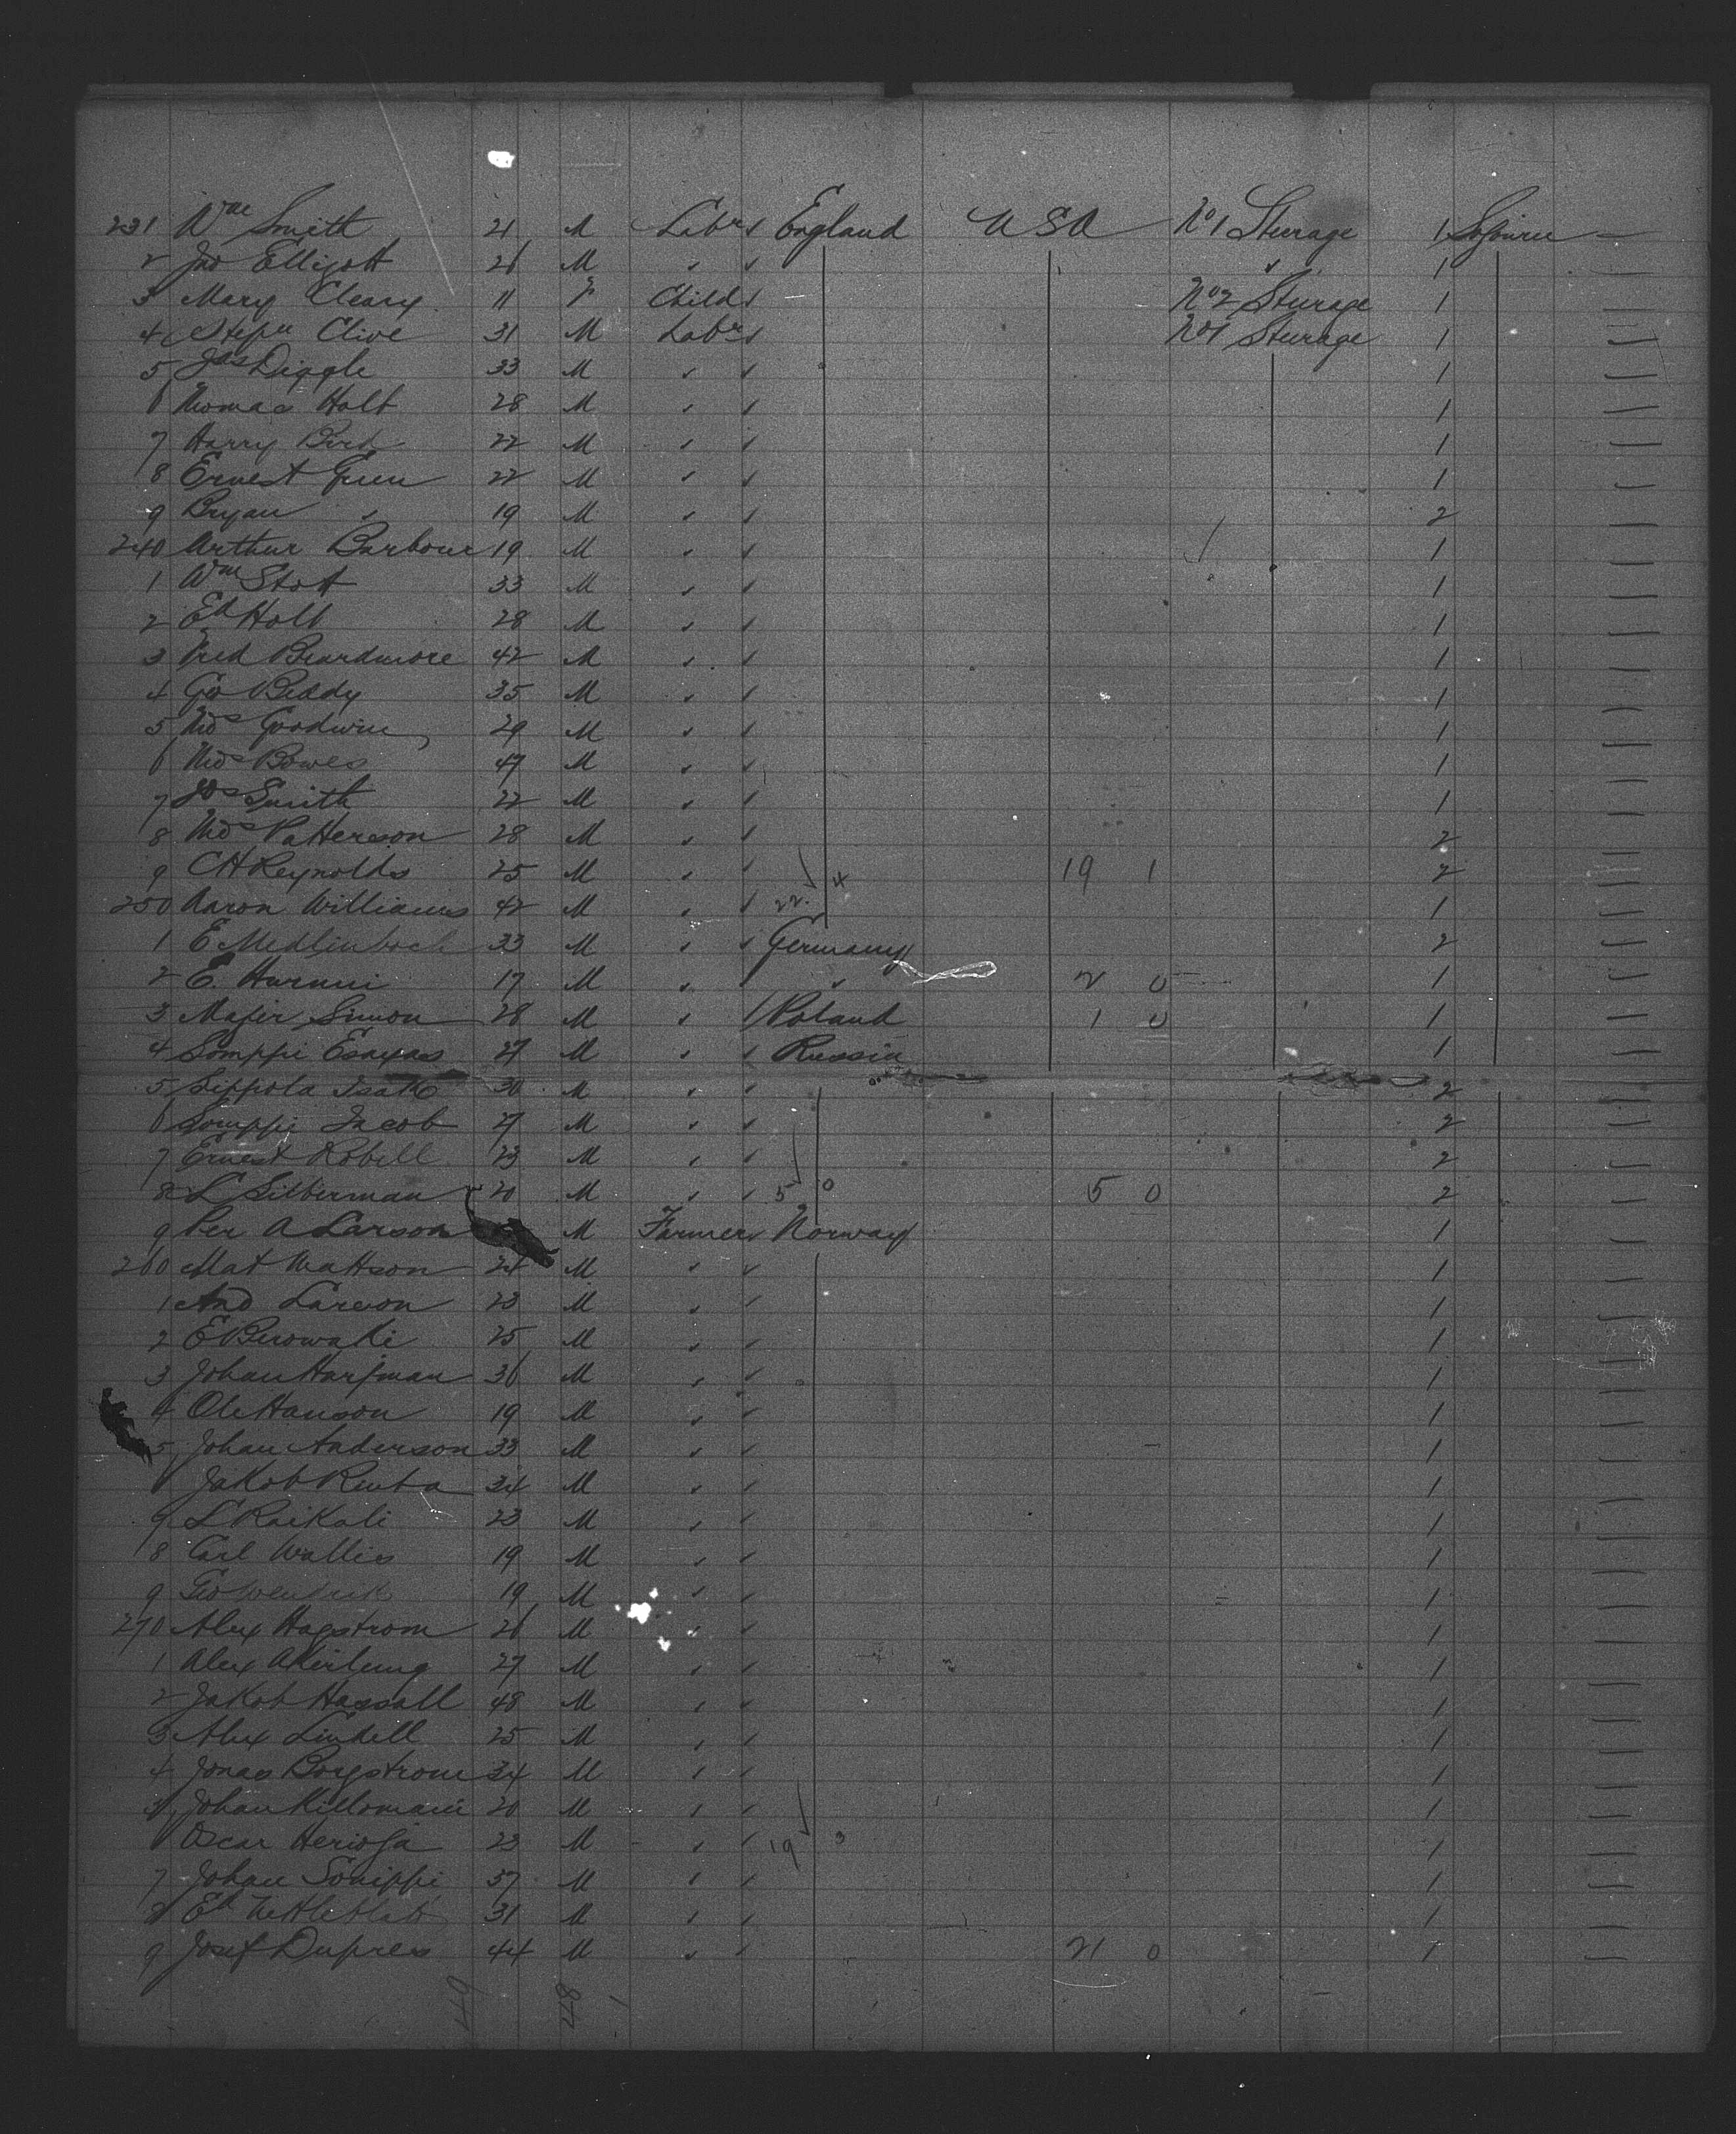 231 Wm Smith 21 M Labr " England USA No1 Sturage 1 Sojourn —
2 Jno Elligott 26 M " " " 1 —
3 Mary Cleary 11 F Child " No2 Sturage 1 —
4 Stepn Clive 31 M Labr " No1 Sturage 1 —
5 Jas Diggle 33 M " " 1 —
6 Thomas Holt 28 M " " 1 —
7 Harry Birch 22 M " " 1 —
8 Ernest Green 22 M " " 1 —
9 Bryan " 19 M " " 2 —
240 Arthur Barbour 19 M " " 1 —
1 Wm Stott 33 M " " 1 —
2 Ed Holt 28 M " " 1 —
3 Fred Beardmore 42 M " " 1 —
4 Geo Beddy 35 M " " 1 —
5 Thos Goodwin 29 M " " 1 —
6 Thos Bowes 47 M " " 1 —
7 Jos Smith 22 M " " 1 —
8 Thos Patterson 28 M " " 2 —
9 CH Reynolds 25 M " " 19 1 2 —
250 Aaron Williams 42 M " " 22 4 1 —
1 E Medlinboch 33 M " " Germany 2 —
2 E. 17 M " " 2 0 1 —
3 Majer Simon 28 M " " Poland 1 0 1 —
4 Somppi Esayas 27 M " " Russia 1 —
5 Seppola Isak 30 M " " 2 —
6 Somppi Jacob 27 M " " 2 —
7 Ernest Robell 23 M " " 2 —
8 L Silberman 20 M " " 5 0 5 0 2 —
9 Per A Larson M Farmer " Norway 1 —
260 Mat Mattson 24 M " " 1 —
1 And Larson 23 M " " 1 —
2 E 25 M " " 1 —
3 Johan Harjman 36 M " " 1 —
4 Ole Hanson 19 M " " 1 —
5 Johan Anderson 33 M " " 1 —
6 Jakob 34 M " " 1 —
L Raikali 23 M " " 1 —
8 Carl Wallis 19 M " " 1 —
9 Geo 19 M " " 1 —
270 Alex Hagstrom 26 M " " 1 —
1 Alex 27 M " " 1 —
2 Jakob Hassall 48 M " " 1 —
3 Alex Lindell 25 M " " 1 —
4 Jonas Borgstrom 34 M " " 1 —
5 Johan 20 M " " 1 —
6 Oscar Herioja 23 M " " 19 3 1 —
7 Johan 57 M " " 1 —
8 Ed 31 M " " 1 —
9 Josef Dupres 44 M " " 21 0 1 —
49 48 1